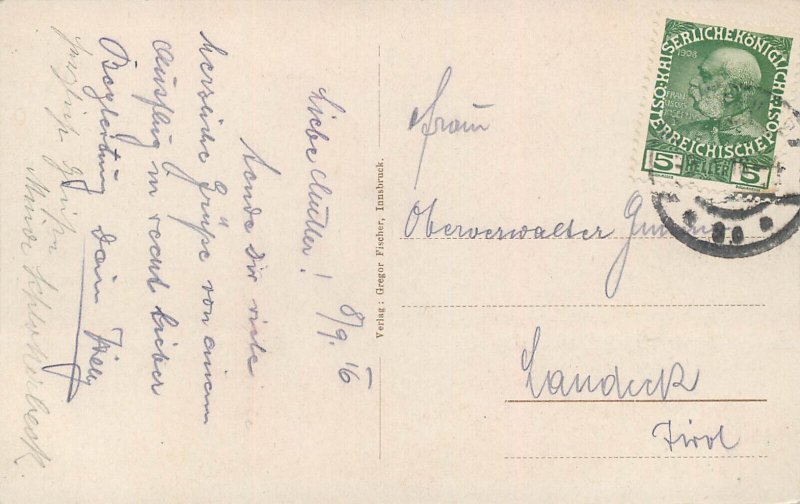 Liebe Mutter! 8/9. 16
Sende Dir viele
herzliche Grüße von einem
Ausflug in recht lieber
Begleitung Dein
Verlag: Gregor Fischer, Innsbruck.
KAISERLICHEKÖNIGLICHE ÖSTERREICHISCHE
1908
5 HELLER 5
Frau
Oberverwalter
Landeck
Tirol